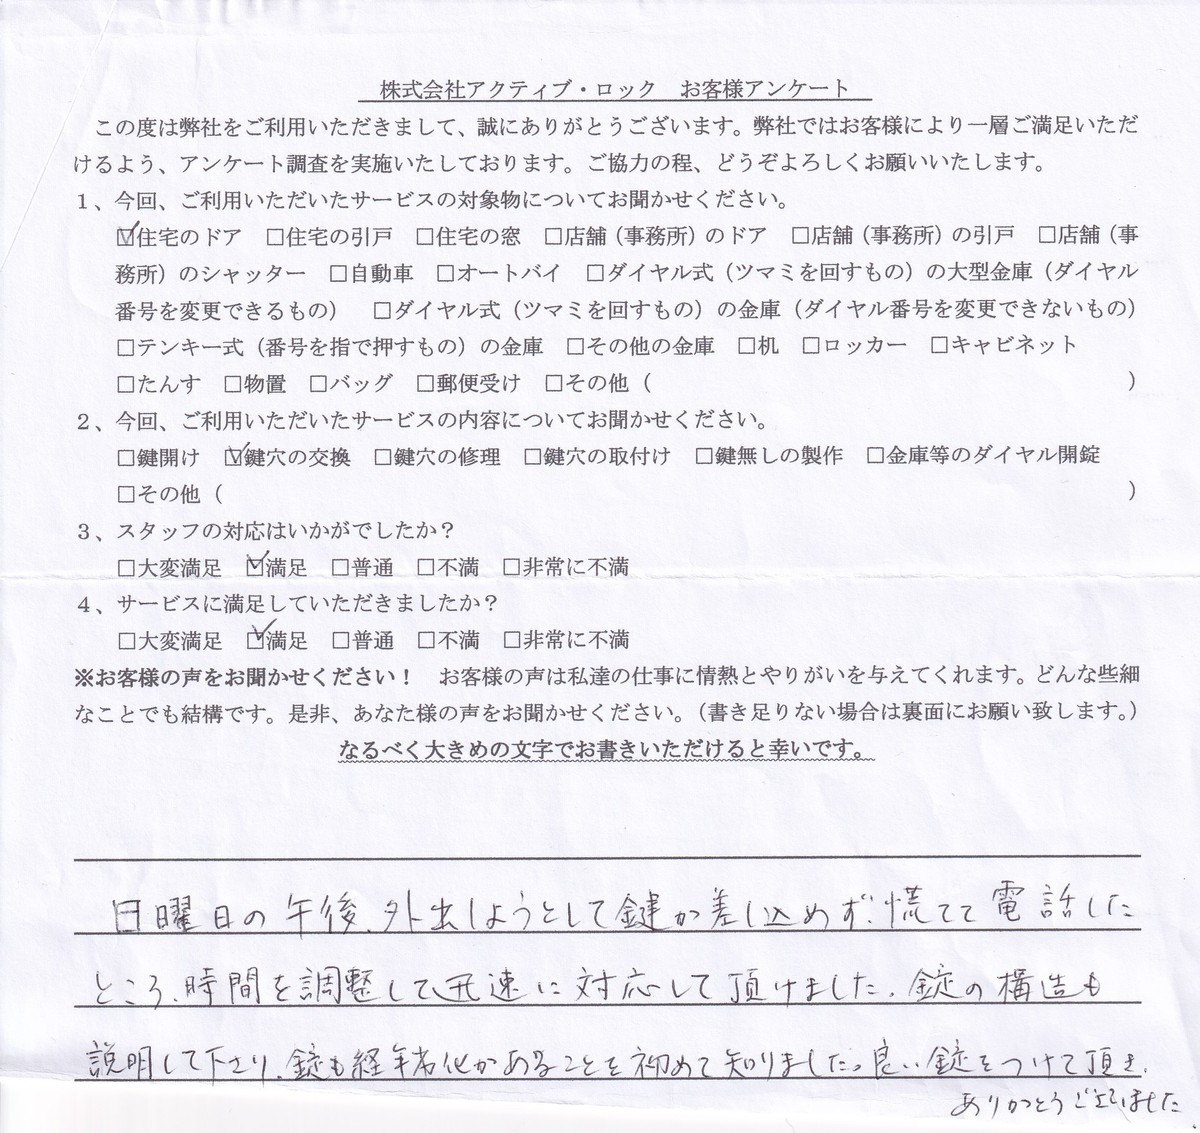 株式会社アクティブ・ロック　お客様アンケート
この度は弊社をご利用いただきまして、誠にありがとうございます。弊社ではお客様により一層ご満足いただ
けるよう、アンケート調査を実施いたしております。ご協力の程、どうぞよろしくお願いいたします。
1、今回、ご利用いただいたサービスの対象物についてお聞かせください。
☑住宅のドア　□住宅の引戸　□住宅の窓　□店舗（事務所）のドア　□店舗（事務所）の引戸　□店舗（事
務所）のシャッター　□自動車　□オートバイ　□ダイヤル式（ツマミを回すもの）の大型金庫（ダイヤル
番号を変更できるもの）　□ダイヤル式（ツマミを回すもの）の金庫（ダイヤル番号を変更できないもの）
□テンキー式（番号を指で押すもの）の金庫　□その他の金庫　□机　□ロッカー　□キャビネット
□たんす　□物置　□バッグ　□郵便受け　□その他（　）
2、今回、ご利用いただいたサービスの内容についてお聞かせください。
□鍵開け　☑鍵穴の交換　□鍵穴の修理　□鍵穴の取付け　□鍵無しの製作　□金庫等のダイヤル開錠
□その他（　）
3、スタッフの対応はいかがでしたか？
□大変満足　☑満足　□普通　□不満　□非常に不満
4、サービスに満足していただきましたか？
□大変満足　☑満足　□普通　□不満　□非常に不満
※お客様の声をお聞かせください！　お客様の声は私達の仕事に情熱とやりがいを与えてくれます。どんな些細
なことでも結構です。是非、あなた様の声をお聞かせください。（書き足りない場合は裏面にお願い致します。）
なるべく大きめの文字でお書きいただけると幸いです。
日曜日の午後、外出しようとして鍵が差し込めず、慌てて電話した
ところ、時間を調整して迅速に対応して頂けました。錠の構造も
説明して下さり、錠も経年劣化があることを初めて知りました。良い錠をつけて頂き、
ありがとうございました